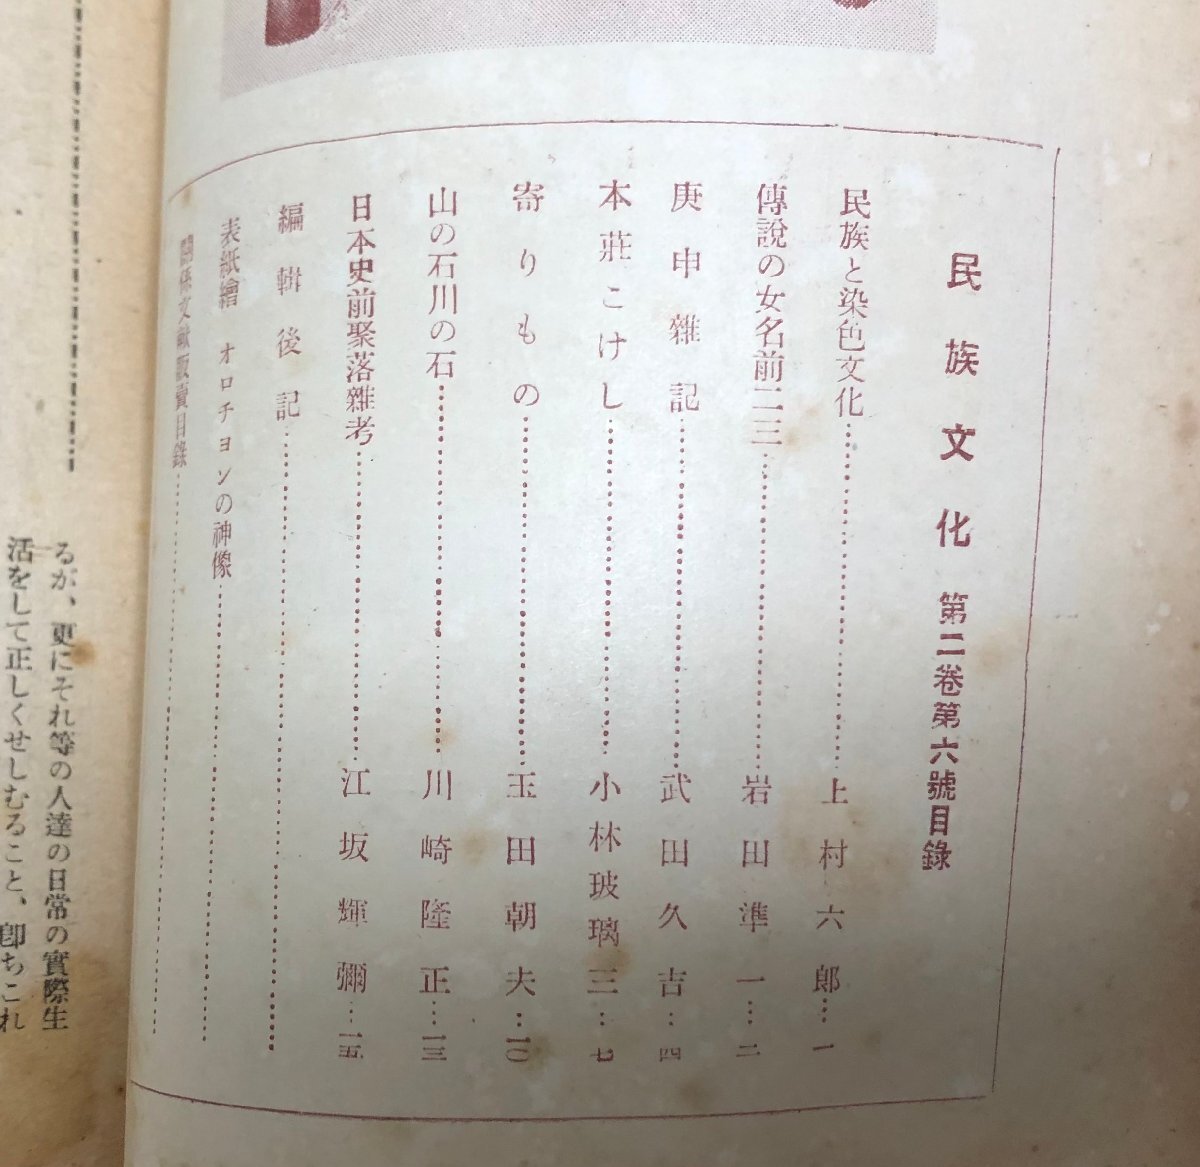 民族文化 第二卷第六號目錄
民族と染色文化…………上村六郎…一
傳說の女名前二三…………岩田準一…二
庚申雜記…………武田久吉…四
本莊こけし…………小林玻璃三…七
寄りもの…………玉田朝夫…一〇
山の石川の石…………川崎隆正…一三
日本史前聚落雜考…………江坂輝彌…一五
編輯後記…………
表紙繪 オロチヨンの神像…………
關係文獻販賣目錄…………
るが、更にそれ等の人達の日常の實際生
活をして正しくせしむること、卽ちこれ